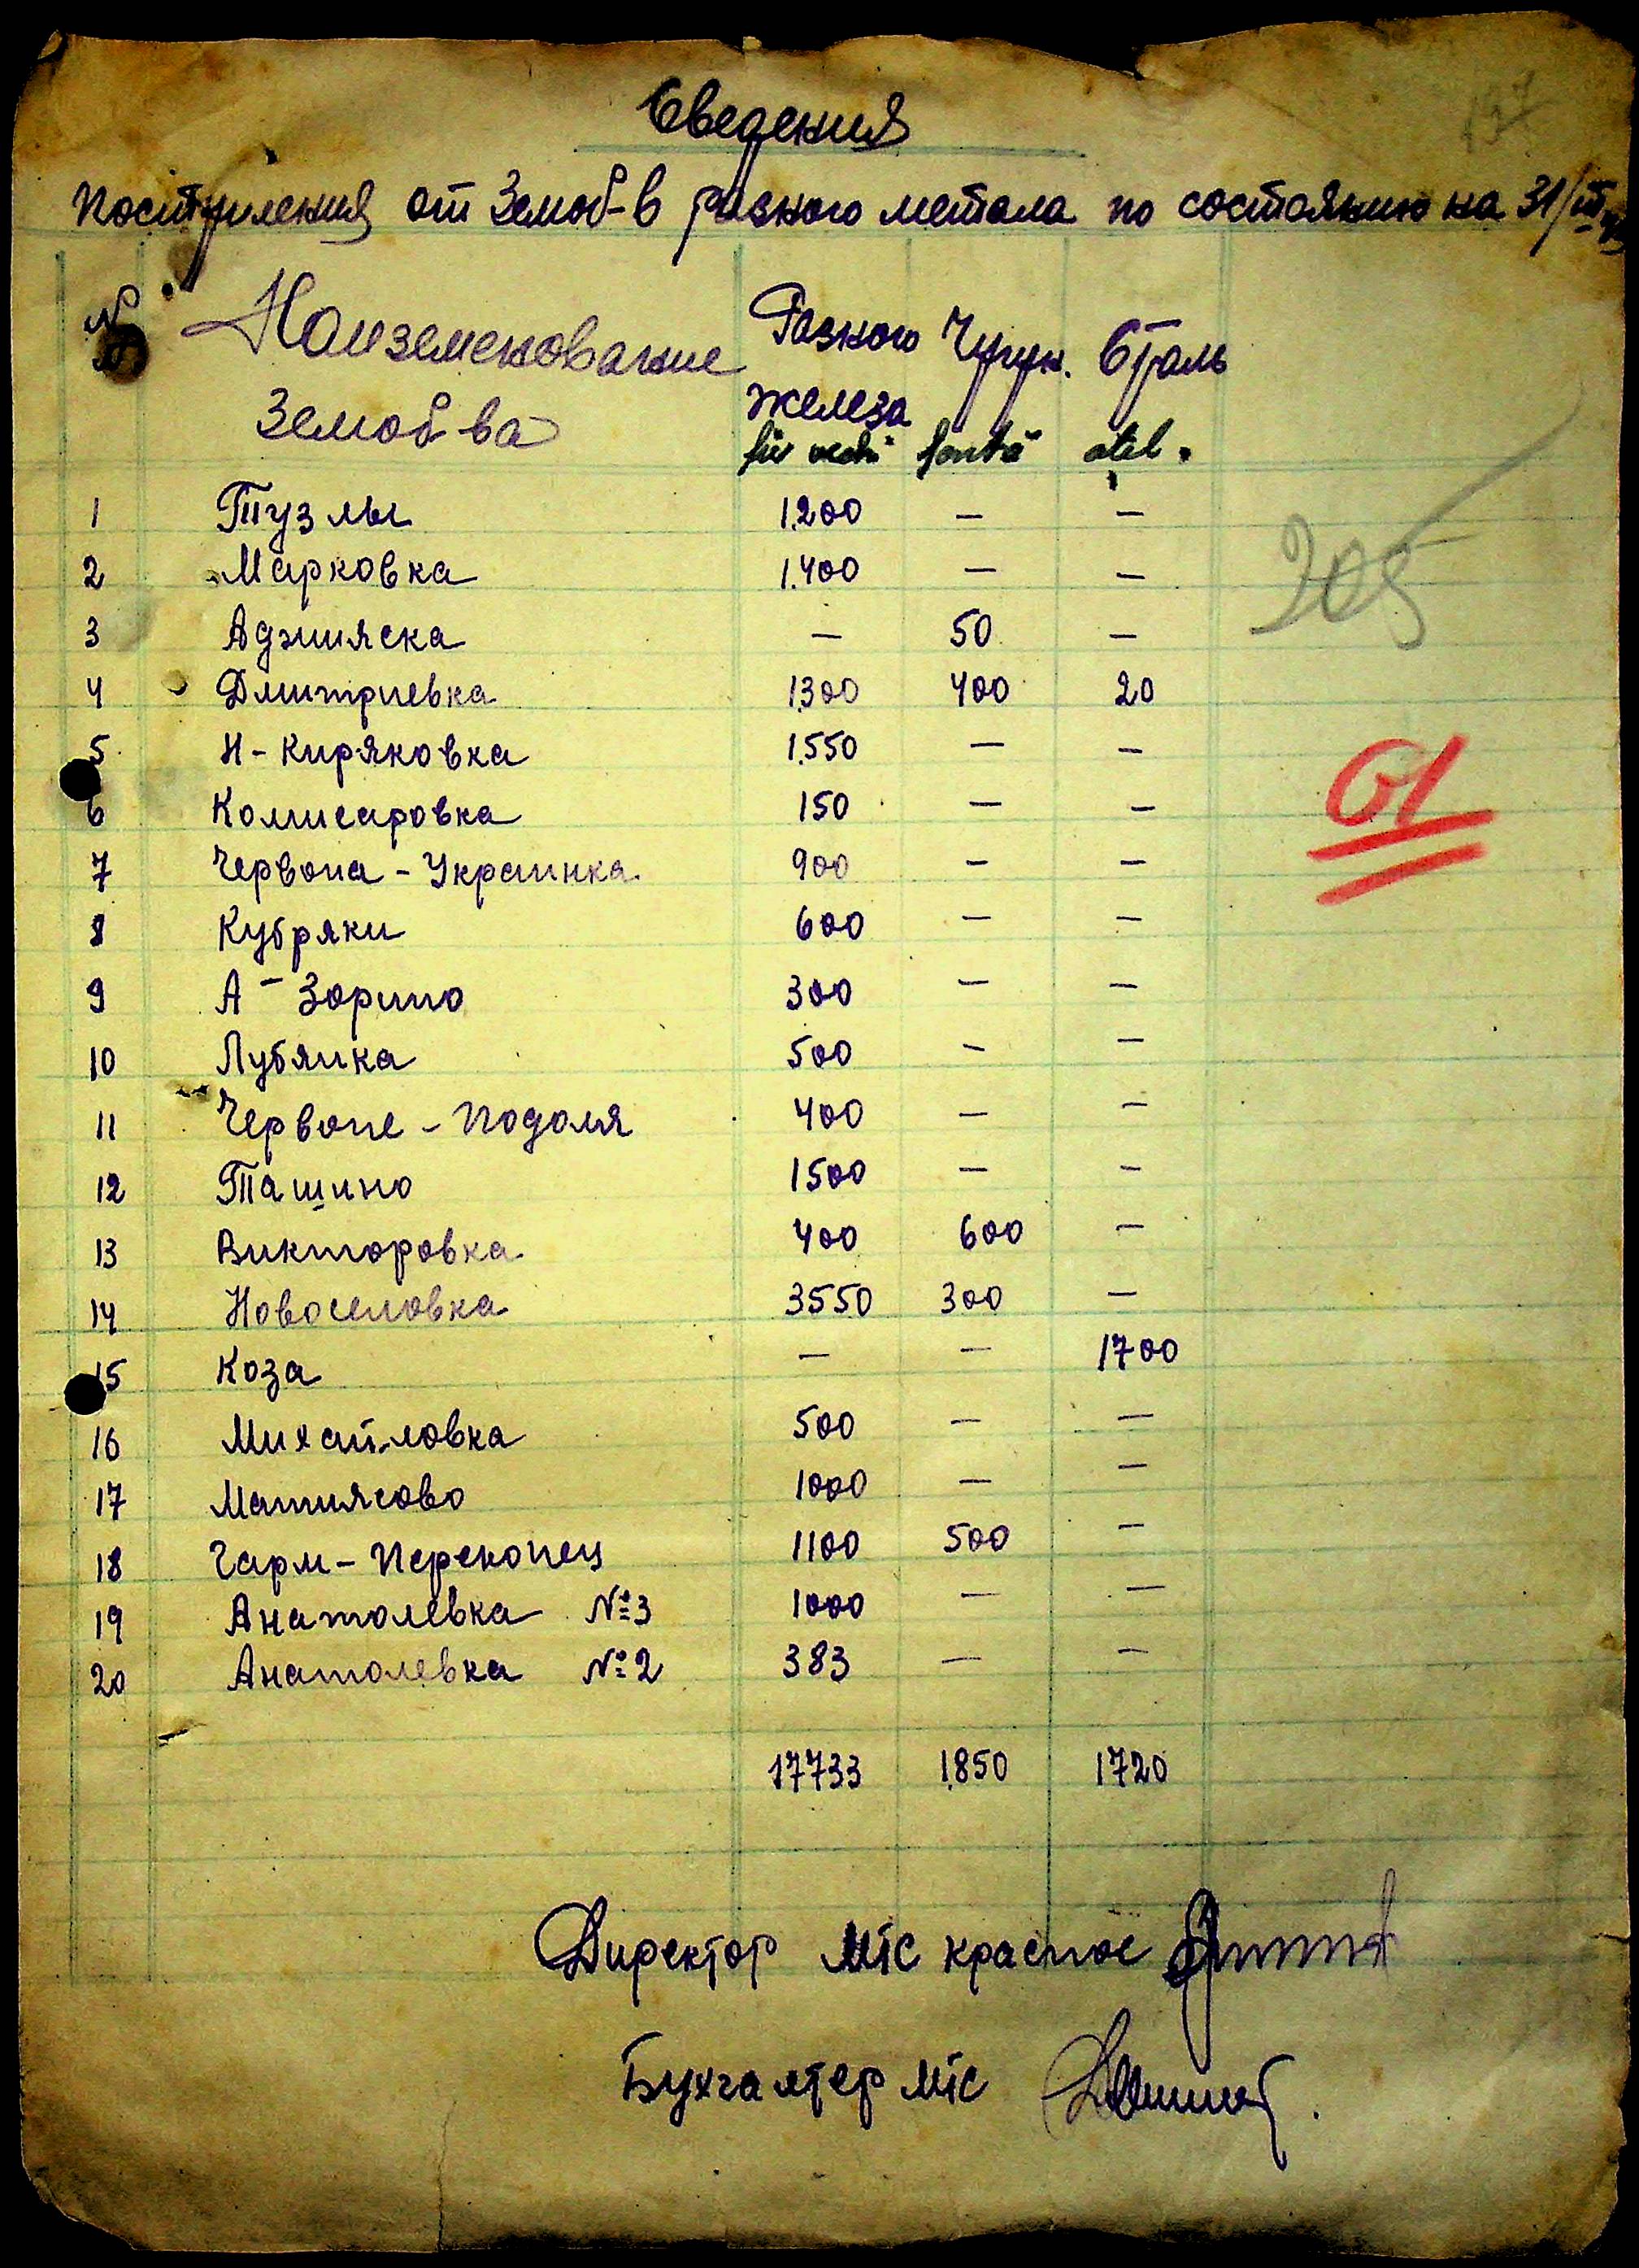 Сведения
Поступления от Земоб-в разного метала по состоянию на 31/III
№ Наиземенование Разного Чугун. Сталь
Земоб-ва железа
fier vechi fontă otel.
1 Тузлы 1.200 — —
2 Марковка 1.400 — —
3 Аджияска — 50 —
4 Дмитриевка 1300 400 20
5 Н-Киряковка 1.550 — —
6 Комисаровка 150 — —
7 Червона-Украинка 900 — —
8 Кубряки 600 — —
9 А-Зорино 300 — —
10 Лубянка 500 — —
11 Червоне-Подоля 400 — —
12 Ташино 1500 — —
13 Викторовка 400 600 —
14 Новоселовка 3550 300 —
15 Коза — — 1700
16 Михайловка 500 — —
17 Матиясово 1000 — —
18 Чарм-Перекопец 1100 500 —
19 Анатолевка №3 1000 — —
20 Анатолевка №2 383 — —
17733 1.850 1720
205
61
137
Директор МТС красное
Бухгалтер МТС